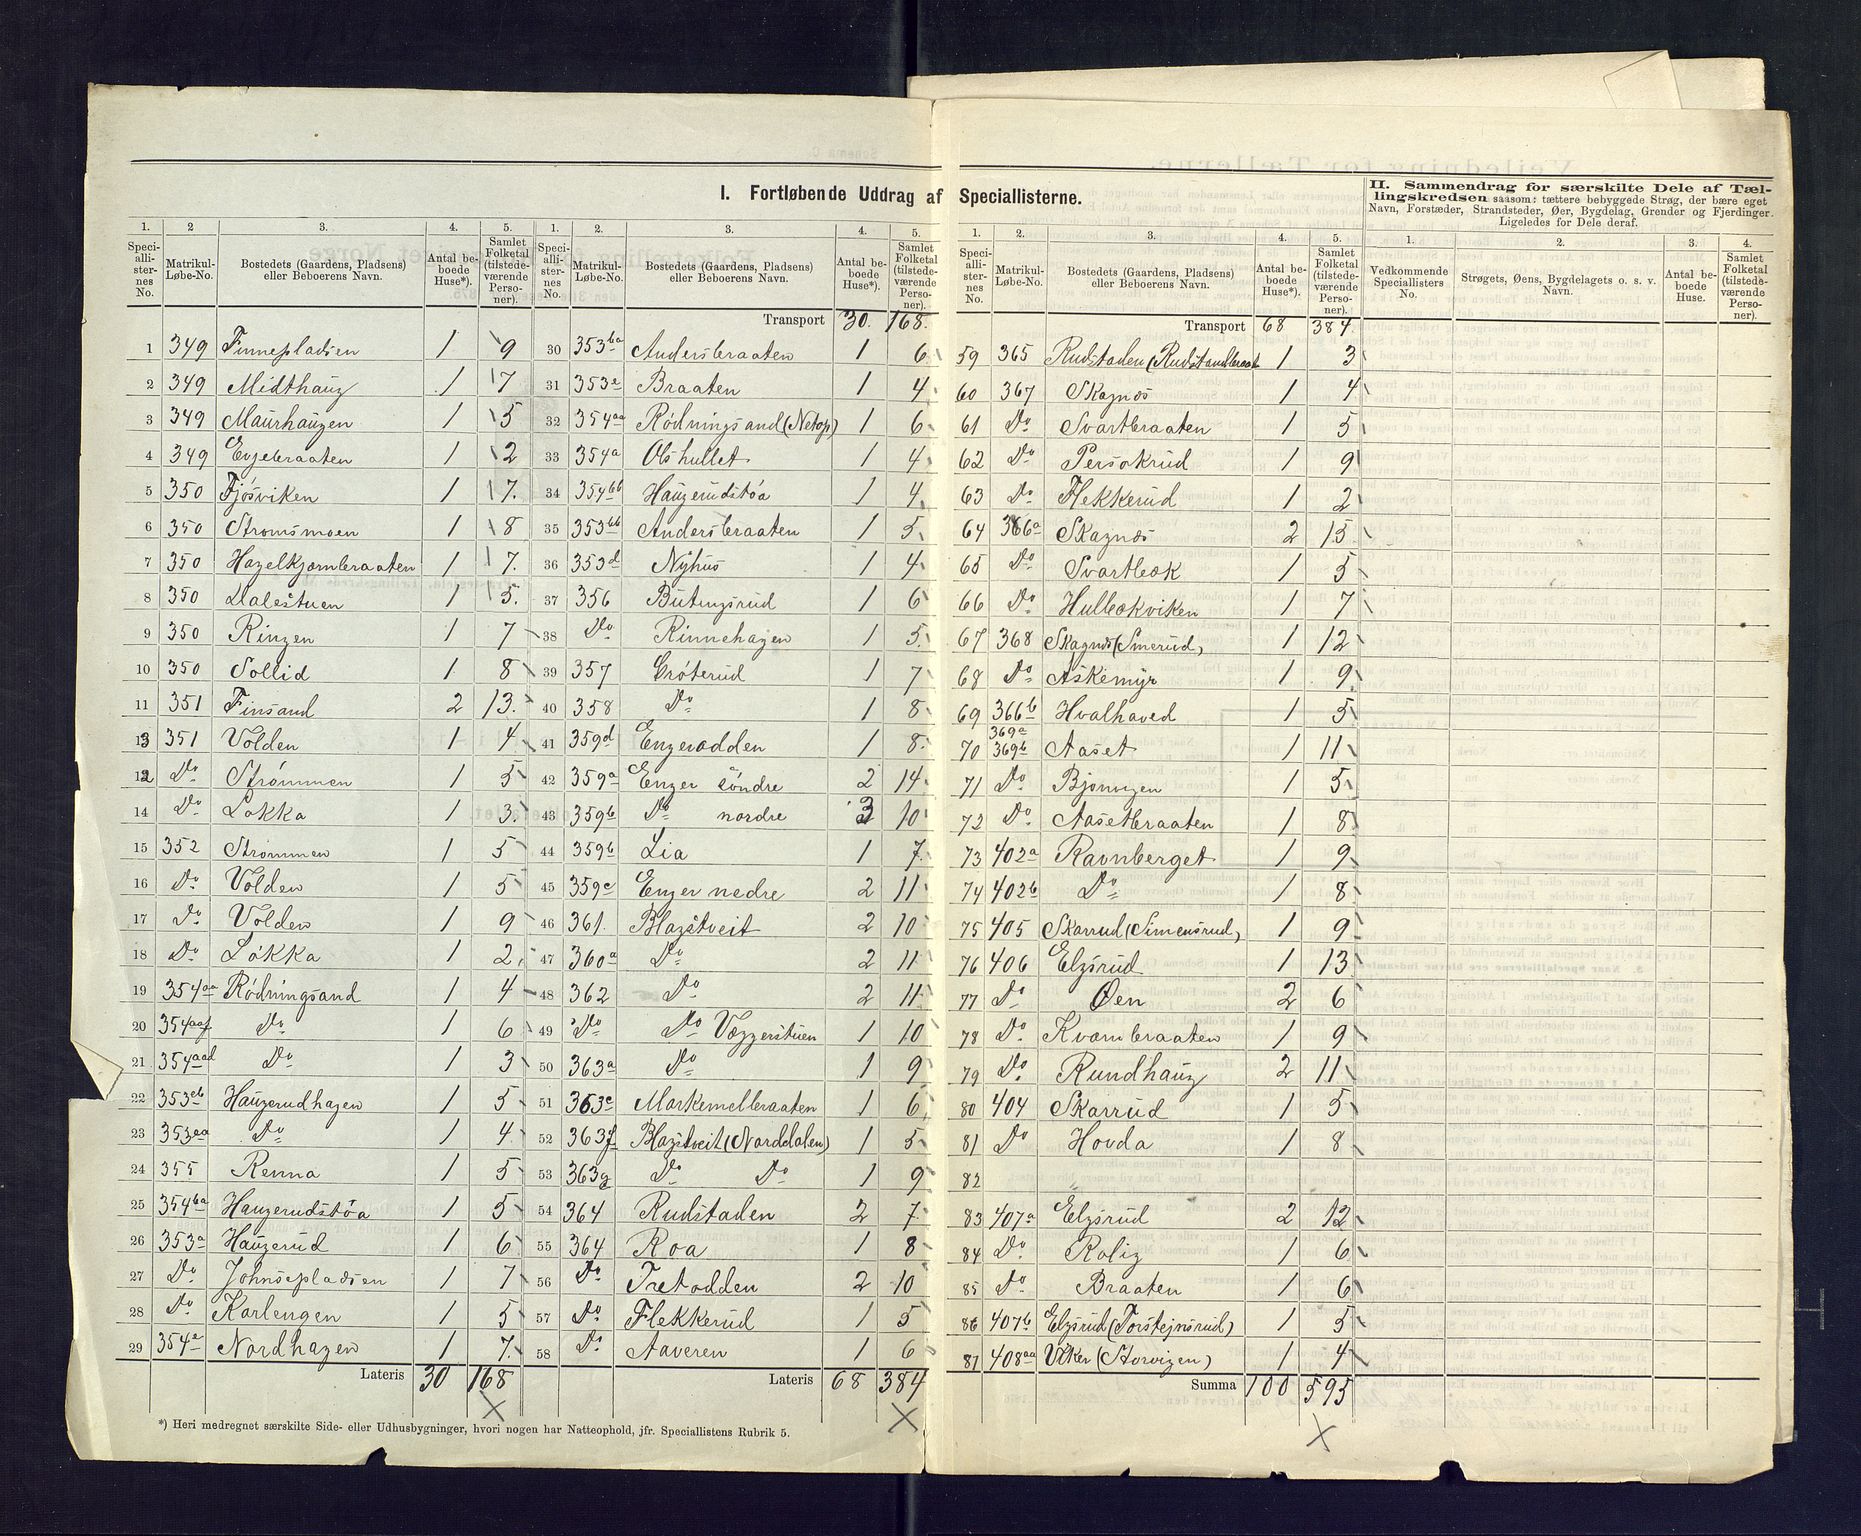 I. Fortløbende Uddrag af Speciallisterne.
II. Sammendrag for særskilte Dele af Tællingskredsen saasom: tættere bebyggede Strøg, der bære eget Navn, Forstæder, Strandsteder, Øer, Bygdelag, Grender og Fjerdinger. Ligeledes for Dele deraf.
1. 2 3. 4. 5. 1. 2. 3. 4. 5. 1. 2. 3. 4. 5. 1. 2. 3. 4.
Speciallisternes No. Matrikul-Løbe-No. Bostedets (Gaardens, Pladsens) eller Beboerens Navn. Antal beboede Huse*). Samlet Folketal (tilstedeværende Personer).
Speciallisternes No. Matrikul-Løbe-No. Bostedets (Gaardens, Pladsens) eller Beboerens Navn. Antal beboede Huse*). Samlet Folketal (tilstedeværende Personer).
Speciallisternes No. Matrikul-Løbe-No. Bostedets (Gaardens, Pladsens) eller Beboerens Navn. Antal beboede Huse*). Samlet Folketal (tilstedeværende Personer).
Vedkommende Speciallisters No. Strøgets, Øens, Bygdelagets o. s. v. Navn. Antal beboede Huse. Samlet Folketal (tilstedeværende Personer).
1 349 Finnepladsen 1 9
2 349 Midthaug 1 7
3 349 Maurhaugen 1 5
4 349 Evjebraaten 1 2
5 350 Fjøsviken 1 7.
6 350 Strømsmoen 1 8
7 350 Hagelkjørnbraaten 1 7.
8 350 Dalestuen 1 5.
9 350 Ringen 1 7
10 350 Sollid 1 8
11 351 Finsand 2 13.
13 351 Volden 1 4
12 Do Strømmen 1 5
14 Do Løkka 1 3.
15 352 Strømmen 1 5
16 Do Volden 1 5
17 Do Volden 1 9
18 Do Løkka 1 2.
19 354aa Rødningsand 1 4
20 354aaf Do 1 6
21 354aad Do 1 3
22 353eb Haugerudhagen 1 5
23 353ea Do 1 4
24 355 Renna 1 5
25 354ba Haugerudstøa 1 5
26 353a Haugerud 1 6
27 Do Johnsepladsen 1 7
28 Do Karlengen 1 5
29 354e Nordhagen 1 7.
Lateris 30 168
Transport 30. 168.
30 353ba Andersbraaten 1 6
31 353e Braaten 1 4
32 354aa Rødningsand (Netop) 1 6
33 354a Olshullet 1 4
34 354bb Haugerudstøa 1 4
35 353bb Andersbraaten 1 5
36 353d Nyhus 1 4
37 356 Butingsrud 1 6
38 Do Rinnehagen 1 5
39 357 Grøterud 1 7
40 358 Do 1 8
41 359d Engerodden 1 8
42 359a Enger söndre 2 14
43 359b Do nordre 3 10
44 359b Lia 1 7
45 359c Enger nedre 2 11
46 361. Blagstveit 2 10
47 360a Do 2 11
48 362 Do 2 11
49 Do Do Væggerstuen 1 10
50 363a Do 1 9
51 363e Markemelbraaten 1 6
52 363f Blagstveit (Norddalen) 1 5
53 363g Do Do 1 9
54 364 Rudstaden 2 7
55 364 Roa 1 8
56 Do Tretodden 2 10
57 Do Flekkerud 1 5
58 Do Aaveren 1 6
Lateris 68 384
Transport 68 384.
59 365 Rudstaden (Rudstandbraat 1 3
60 367 Skagnæs 1 4
61 Do Svartbraaten 1 5
62 Do Persokrud 1 9
63 Do Flekkerud 1 2
64 366a Skagnæs 2 15
65 Do Svartbæk 1 5
66 Do Hulbækviken 1 7
67 368 Skagnæs (Smerud) 1 12
68 Do Askemyr 1 9
69 366b Hvalhaved 1 5
70 369a 369b Aaset 1 11
71 Do Bjønvigen 1 5
72 Do Aasetbraaten 1 8
73 402a Ravnberget 1 9
74 402b Do 1 8
75 405 Skarrud (Simensrud) 1 9
76 406 Elgsrud 1 13
77 Do Øen 2 6
78 Do Kvernbraaten 1 9
79 Do Rundhaug 2 11
80 404 Skarrud 1 5
81 Do Hovda 1 8
82
83 407a Elgsrud 2 12
84 Do Rolig 1 6
85 Do Braaten 1 6
86 407b Elgsrud (Torstejnsrud) 1 5
87 408aa Viker (Storvigen) 1 4
Summa 100 595
*) Heri medregnet særskilte Side- eller Udhusbygninger, hvori nogen har Natteophold, jfr. Speciallistens Rubrik 5.